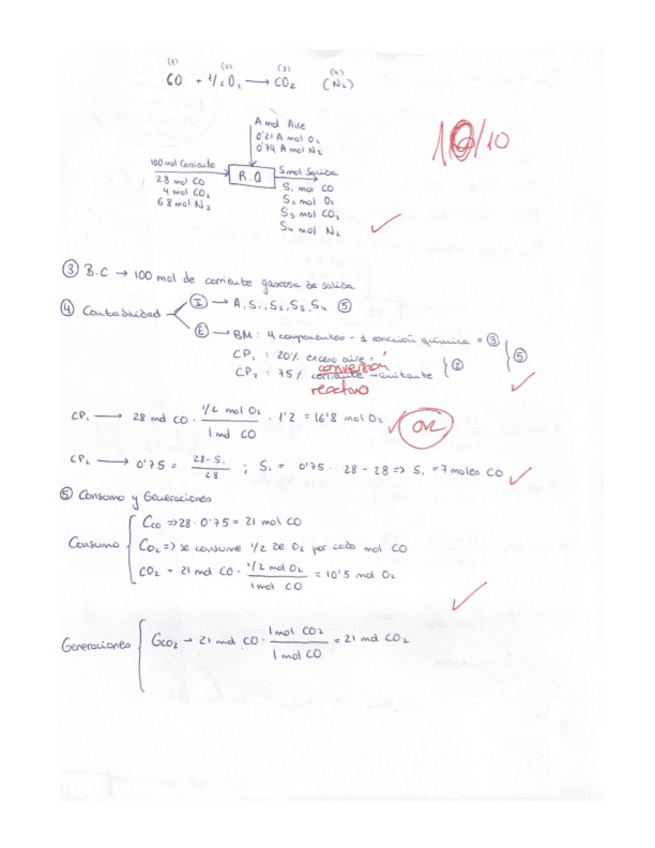 (1) (2) (3) (4)
CO + 1/2 O2 → CO2 (N2)
10/10
A mol Aire
0'21 A mol O2
0'79 A mol N2
100 mol Corriente
28 mol CO
4 mol CO2
68 mol N2
R.Q
S mol Salida
S1 mol CO
S2 mol O2
S3 mol CO2
S4 mol N2
③ B.C → 100 mol de corriente gaseosa de salida
④ Contabilidad
Ⓘ → A, S1, S2, S3, S4 ⑤
Ⓔ → BM: 4 componentes - 1 reacción química = ③
CP1 : 20% exceso aire
conversión
CP2 : 75% corriente - limitante } ② } ⑤
reactivo
CP1 → 28 mol CO · 1/2 mol O2 / 1 mol CO · 1'2 = 16'8 mol O2 OK
CP2 → 0'75 = 28 - S1 / 28 ; S1 = 0'75 · 28 - 28 => S1 = 7 moles CO
⑤ Consumo y Generaciones
Consumo
CCO => 28 · 0'75 = 21 mol CO
CO2 => se consume 1/2 de O2 por cada mol CO
CO2 = 21 mol CO · 1/2 mol O2 / 1 mol CO = 10'5 mol O2
Generaciones
GCO2 → 21 mol CO · 1 mol CO2 / 1 mol CO = 21 mol CO2